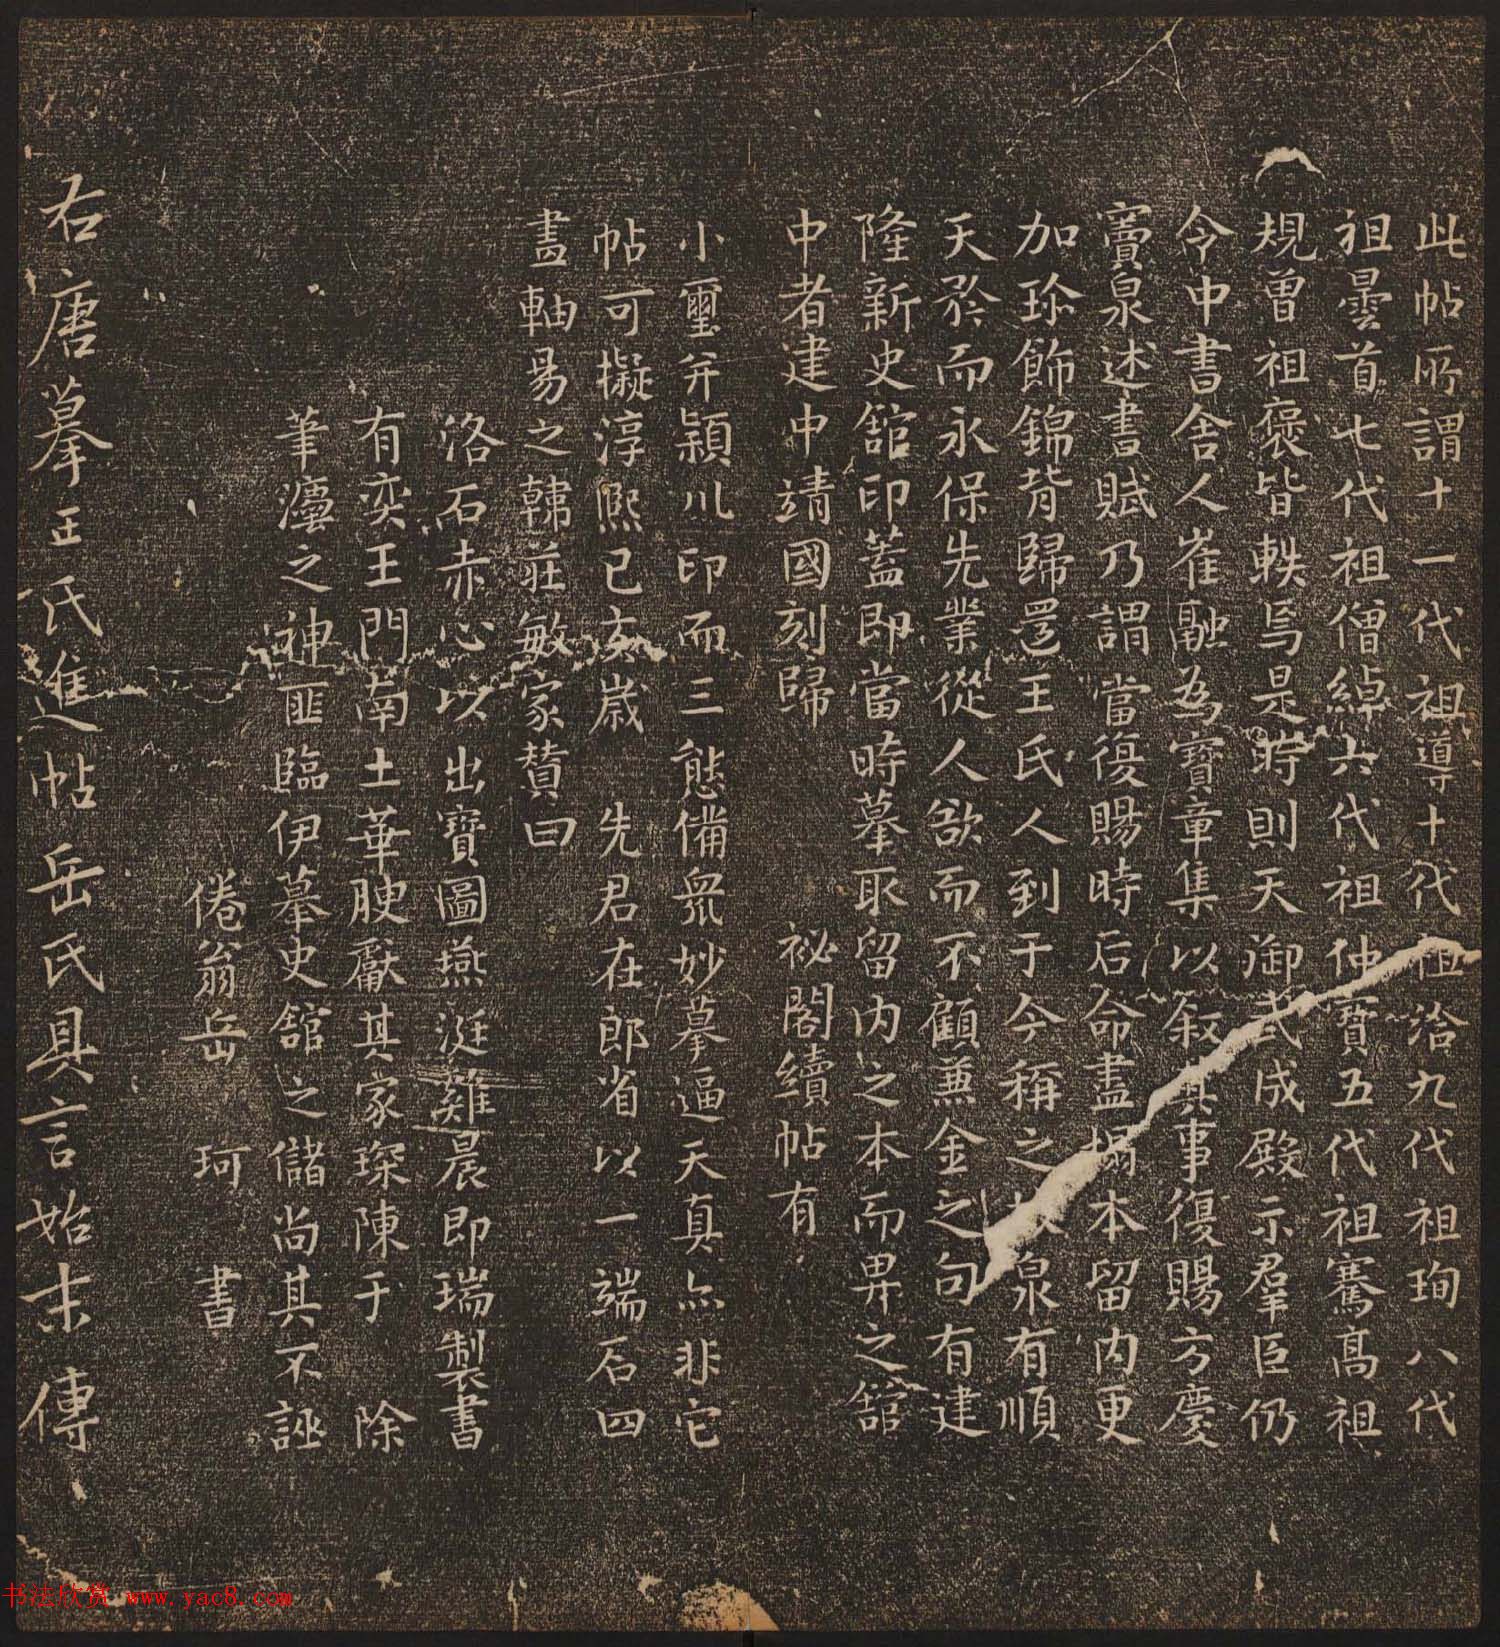 此帖所謂十一代祖導十代祖洽九代祖珣八代
祖曇首七代祖僧綽六代祖仲寶五代祖騫高祖
規曾祖褒皆軼焉是時則天御武成殿示羣臣仍
令中書舍人崔融為寶章集以敘其事復賜方慶
竇泉述書賦乃謂當復賜時后命盡搨本留内更
加珍飾錦背歸還王氏人到于今稱之故泉有順
天矜而永保先業從人欲而不顧兼金之句有建
隆新史館印蓋即當時摹取留内之本而畀之館
中者建中靖國刻歸 祕閣續帖有
小璽并潁川印而三態備衆妙摹逼天真亦非它
帖可擬淳熙己亥歲 先君在郎省以一端石四
畫軸易之韓莊敏家贊曰
洛石赤心以出寶圖燕涎雞晨即瑞製書
有奕王門南土華腴獻其家琛陳于 除
筆灋之神匪臨伊摹史館之儲尚其不誣
倦翁岳 珂 書
右唐摹王氏進帖岳氏具言始末傳
书法欣赏 www.yac8.com